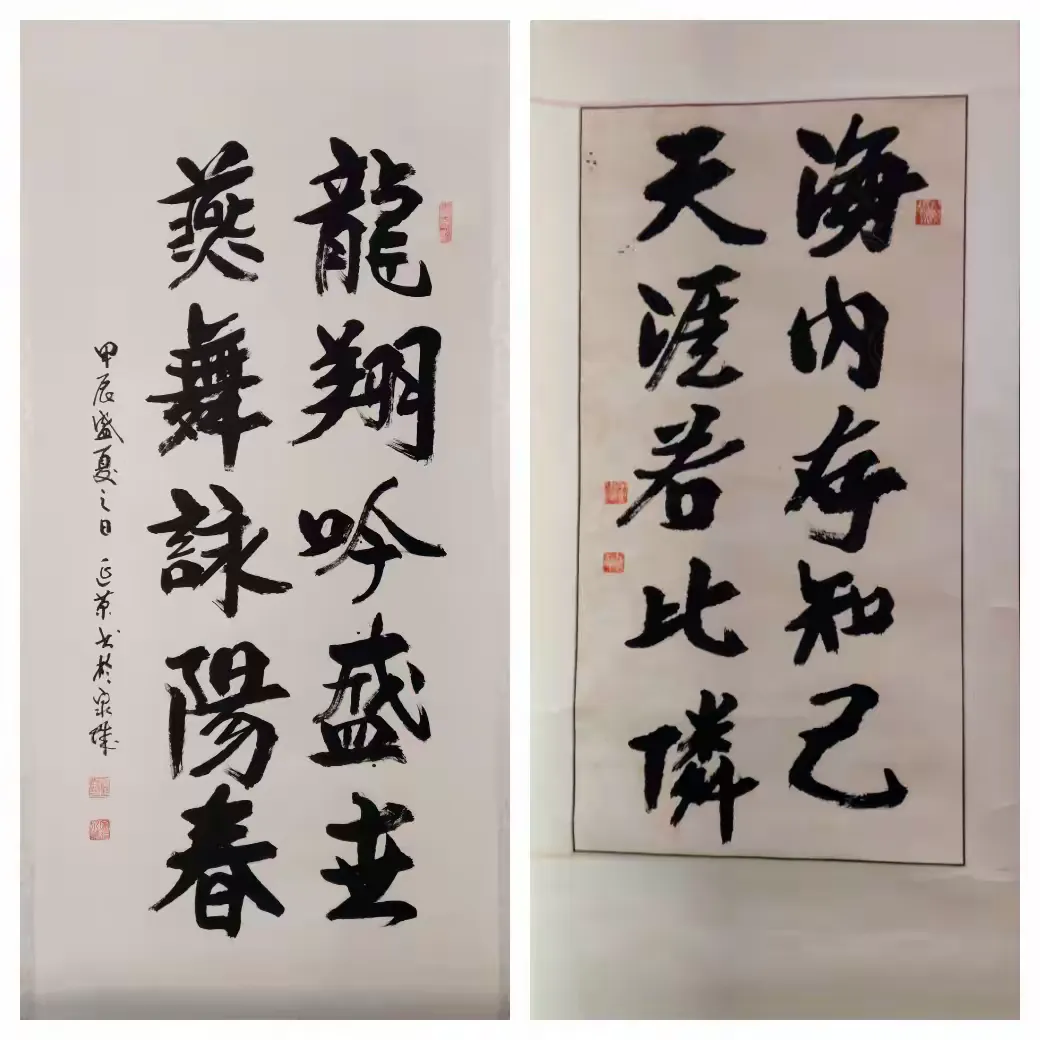 龍翔吟盛世
燕舞詠陽春
甲辰盛夏之日延京书於泉城
海内存知己
天涯若比隣